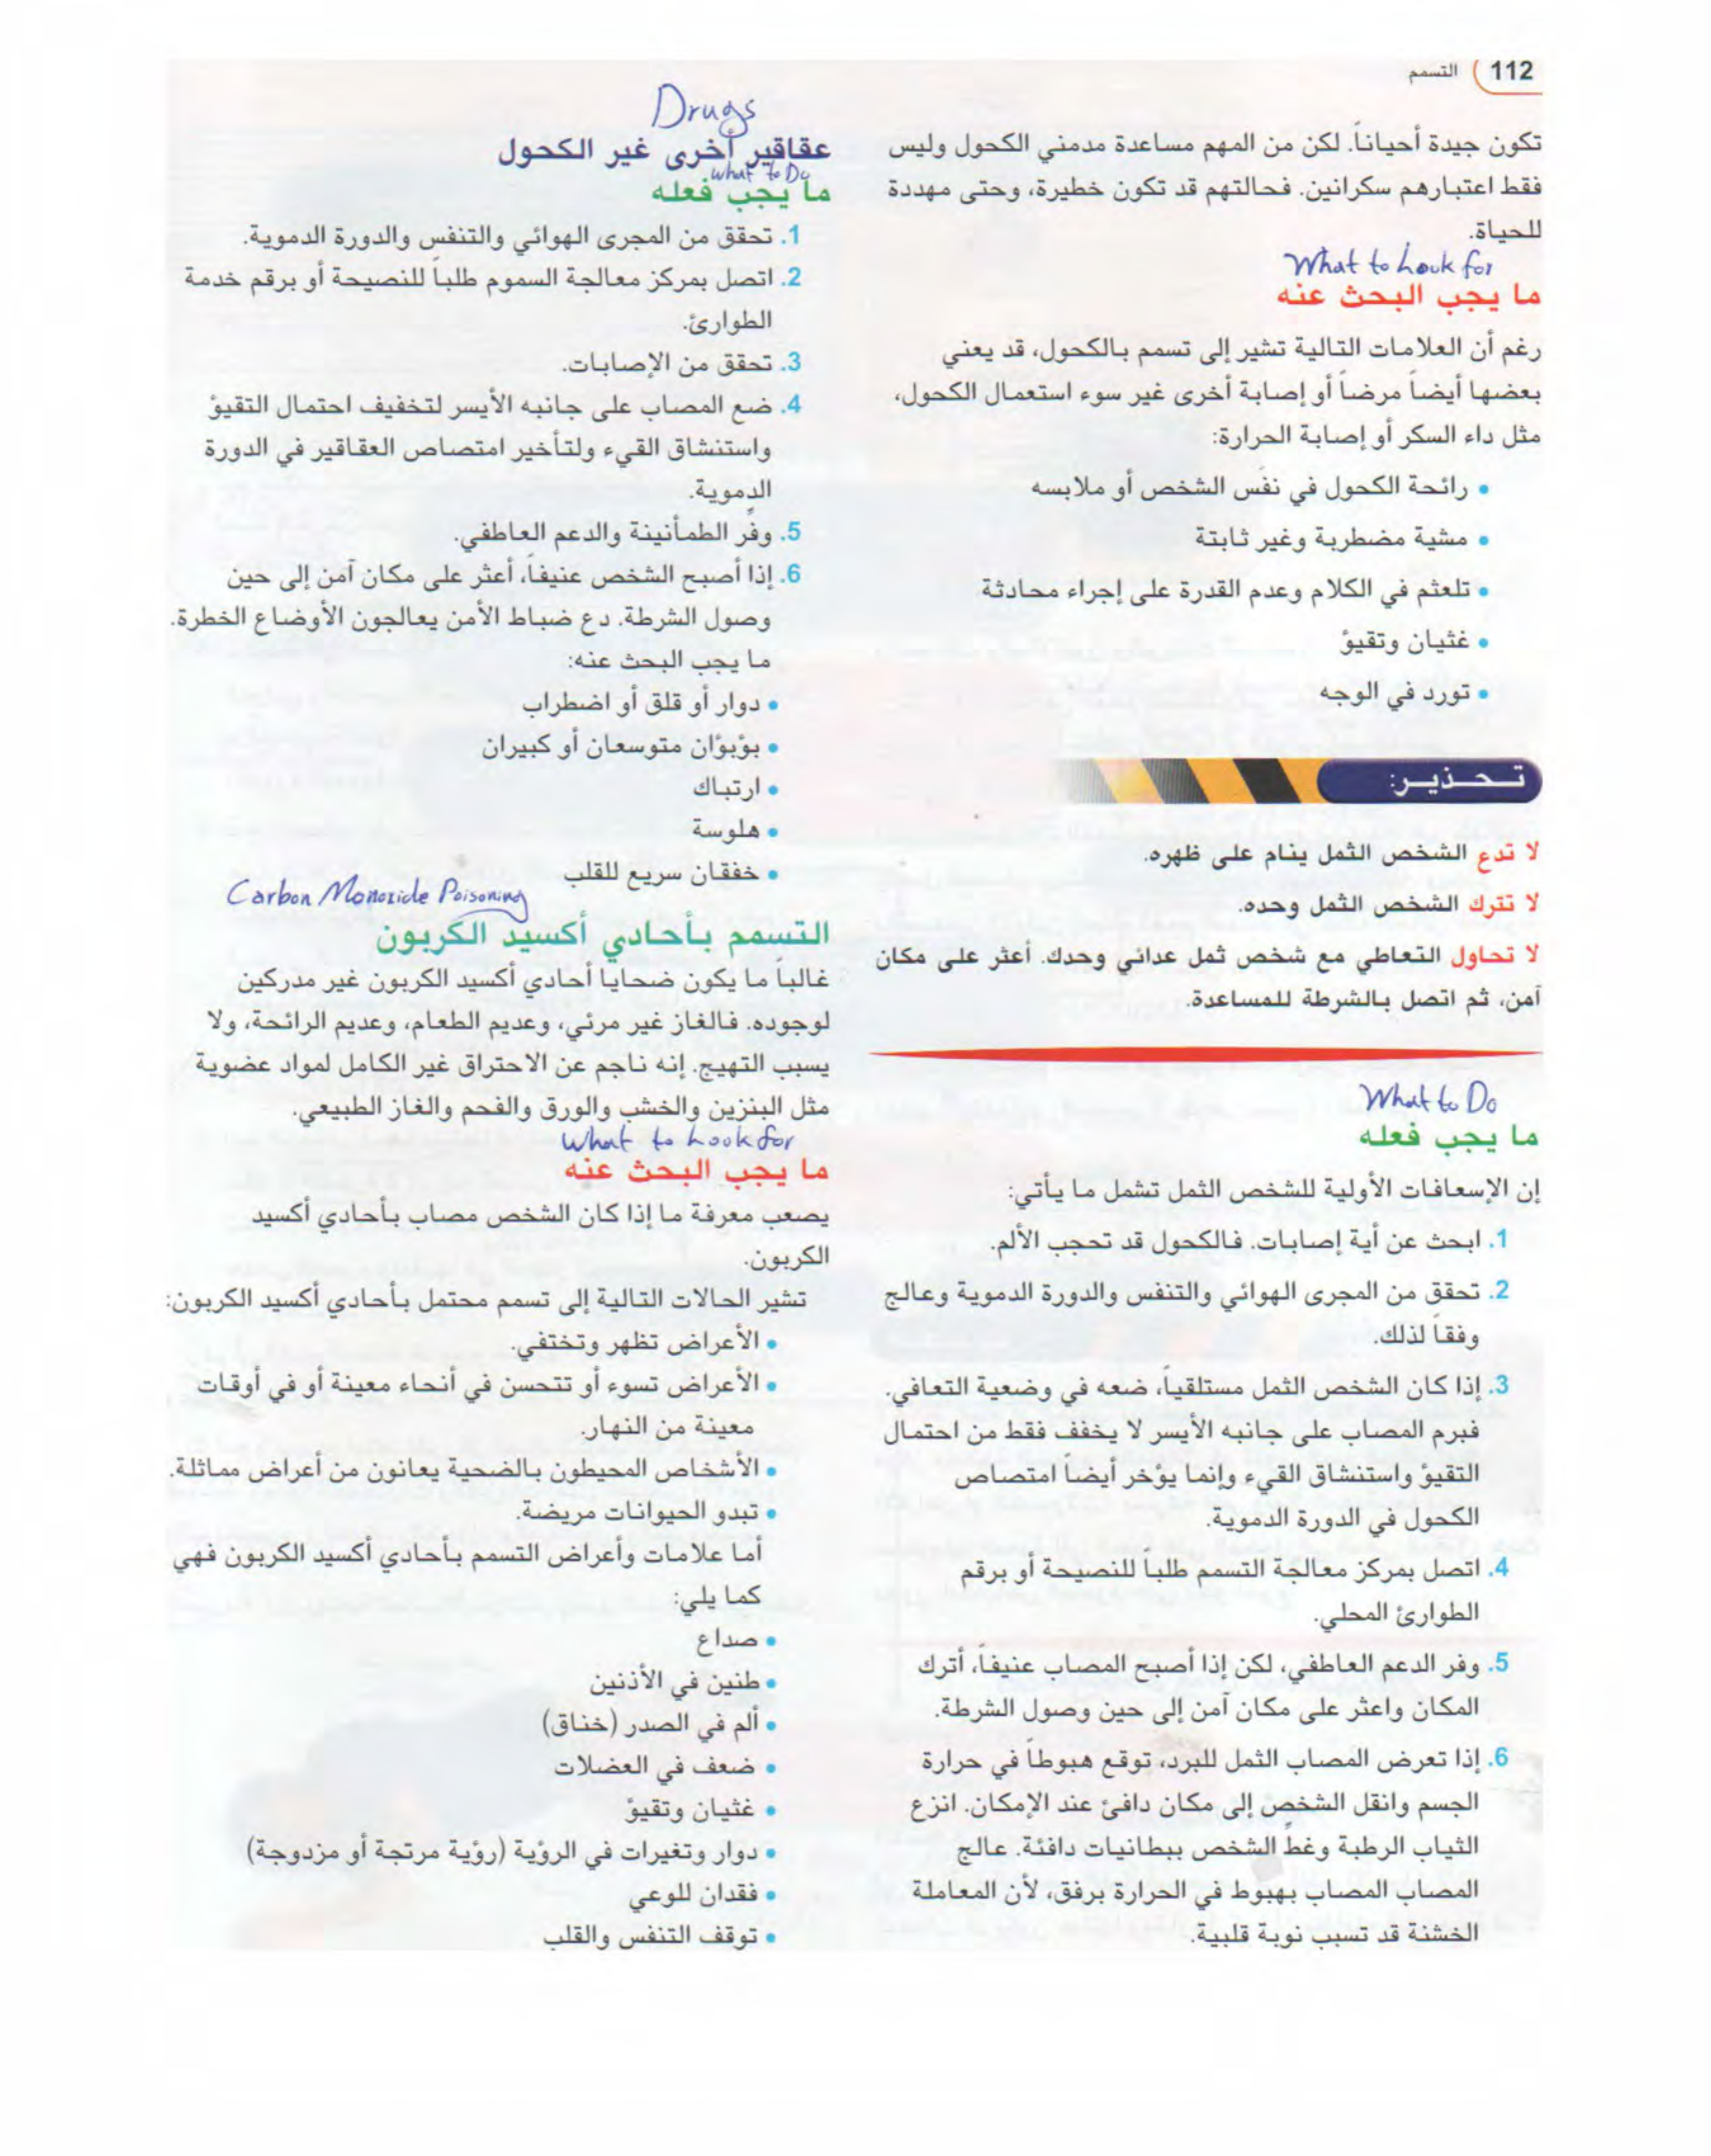 112 ) التسمم
تكون جيدة أحياناً. لكن من المهم مساعدة مدمني الكحول وليس
فقط اعتبارهم سكرانين. فحالتهم قد تكون خطيرة، وحتى مهددة
للحياة.
What to Look for
ما يجب البحث عنه
رغم أن العلامات التالية تشير إلى تسمم بالكحول، قد يعني
بعضها أيضاً مرضاً أو إصابة أخرى غير سوء استعمال الكحول،
مثل داء السكر أو إصابة الحرارة:
• رائحة الكحول في نفَس الشخص أو ملابسه
• مشية مضطربة وغير ثابتة
• تلعثم في الكلام وعدم القدرة على إجراء محادثة
• غثيان وتقيؤ
• تورد في الوجه
تحذير:
لا تدع الشخص الثمل ينام على ظهره.
لا تترك الشخص الثمل وحده.
لا تحاول التعاطي مع شخص ثمل عدائي وحدك. أعثر على مكان
آمن، ثم اتصل بالشرطة للمساعدة.
What to Do
ما يجب فعله
إن الإسعافات الأولية للشخص الثمل تشمل ما يأتي:
1. ابحث عن أية إصابات. فالكحول قد تحجب الألم.
2. تحقق من المجرى الهوائي والتنفس والدورة الدموية وعالج
وفقاً لذلك.
3. إذا كان الشخص الثمل مستلقياً، ضعه في وضعية التعافي.
فبرم المصاب على جانبه الأيسر لا يخفف فقط من احتمال
التقيؤ واستنشاق القيء وإنما يؤخر أيضاً امتصاص
الكحول في الدورة الدموية.
4. اتصل بمركز معالجة التسمم طلباً للنصيحة أو برقم
الطوارئ المحلي.
5. وفر الدعم العاطفي، لكن إذا أصبح المصاب عنيفاً، أترك
المكان واعثر على مكان آمن إلى حين وصول الشرطة.
6. إذا تعرض المصاب الثمل للبرد، توقع هبوطاً في حرارة
الجسم وانقل الشخص إلى مكان دافئ عند الإمكان. انزع
الثياب الرطبة وغطِّ الشخص ببطانيات دافئة. عالج
المصاب المصاب بهبوط في الحرارة برفق، لأن المعاملة
الخشنة قد تسبب نوبة قلبية.
Drugs
عقاقير أخرى غير الكحول
What to Do
ما يجب فعله
1. تحقق من المجرى الهوائي والتنفس والدورة الدموية.
2. اتصل بمركز معالجة السموم طلباً للنصيحة أو برقم خدمة
الطوارئ.
3. تحقق من الإصابات.
4. ضع المصاب على جانبه الأيسر لتخفيف احتمال التقيؤ
واستنشاق القيء ولتأخير امتصاص العقاقير في الدورة
الدموية.
5. وفِّر الطمأنينة والدعم العاطفي.
6. إذا أصبح الشخص عنيفاً، أعثر على مكان آمن إلى حين
وصول الشرطة. دع ضباط الأمن يعالجون الأوضاع الخطرة.
ما يجب البحث عنه:
• دوار أو قلق أو اضطراب
• بؤبؤان متوسعان أو كبيران
• ارتباك
• هلوسة
• خفقان سريع للقلب
Carbon Monoxide Poisoning
التسمم بأحادي أكسيد الكربون
غالباً ما يكون ضحايا أحادي أكسيد الكربون غير مدركين
لوجوده. فالغاز غير مرئي، وعديم الطعام، وعديم الرائحة، ولا
يسبب التهيج. إنه ناجم عن الاحتراق غير الكامل لمواد عضوية
مثل البنزين والخشب والورق والفحم والغاز الطبيعي.
What to Look for
ما يجب البحث عنه
يصعب معرفة ما إذا كان الشخص مصاب بأحادي أكسيد
الكربون.
تشير الحالات التالية إلى تسمم محتمل بأحادي أكسيد الكربون:
• الأعراض تظهر وتختفي.
• الأعراض تسوء أو تتحسن في أنحاء معينة أو في أوقات
معينة من النهار.
• الأشخاص المحيطون بالضحية يعانون من أعراض مماثلة.
• تبدو الحيوانات مريضة.
أما علامات وأعراض التسمم بأحادي أكسيد الكربون فهي
كما يلي:
• صداع
• طنين في الأذنين
• ألم في الصدر (خناق)
• ضعف في العضلات
• غثيان وتقيؤ
• دوار وتغيرات في الرؤية (رؤية مرتجة أو مزدوجة)
• فقدان للوعي
• توقف التنفس والقلب